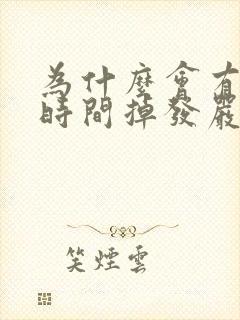 為什麼會有
時間掉發嚴
笑煙雲